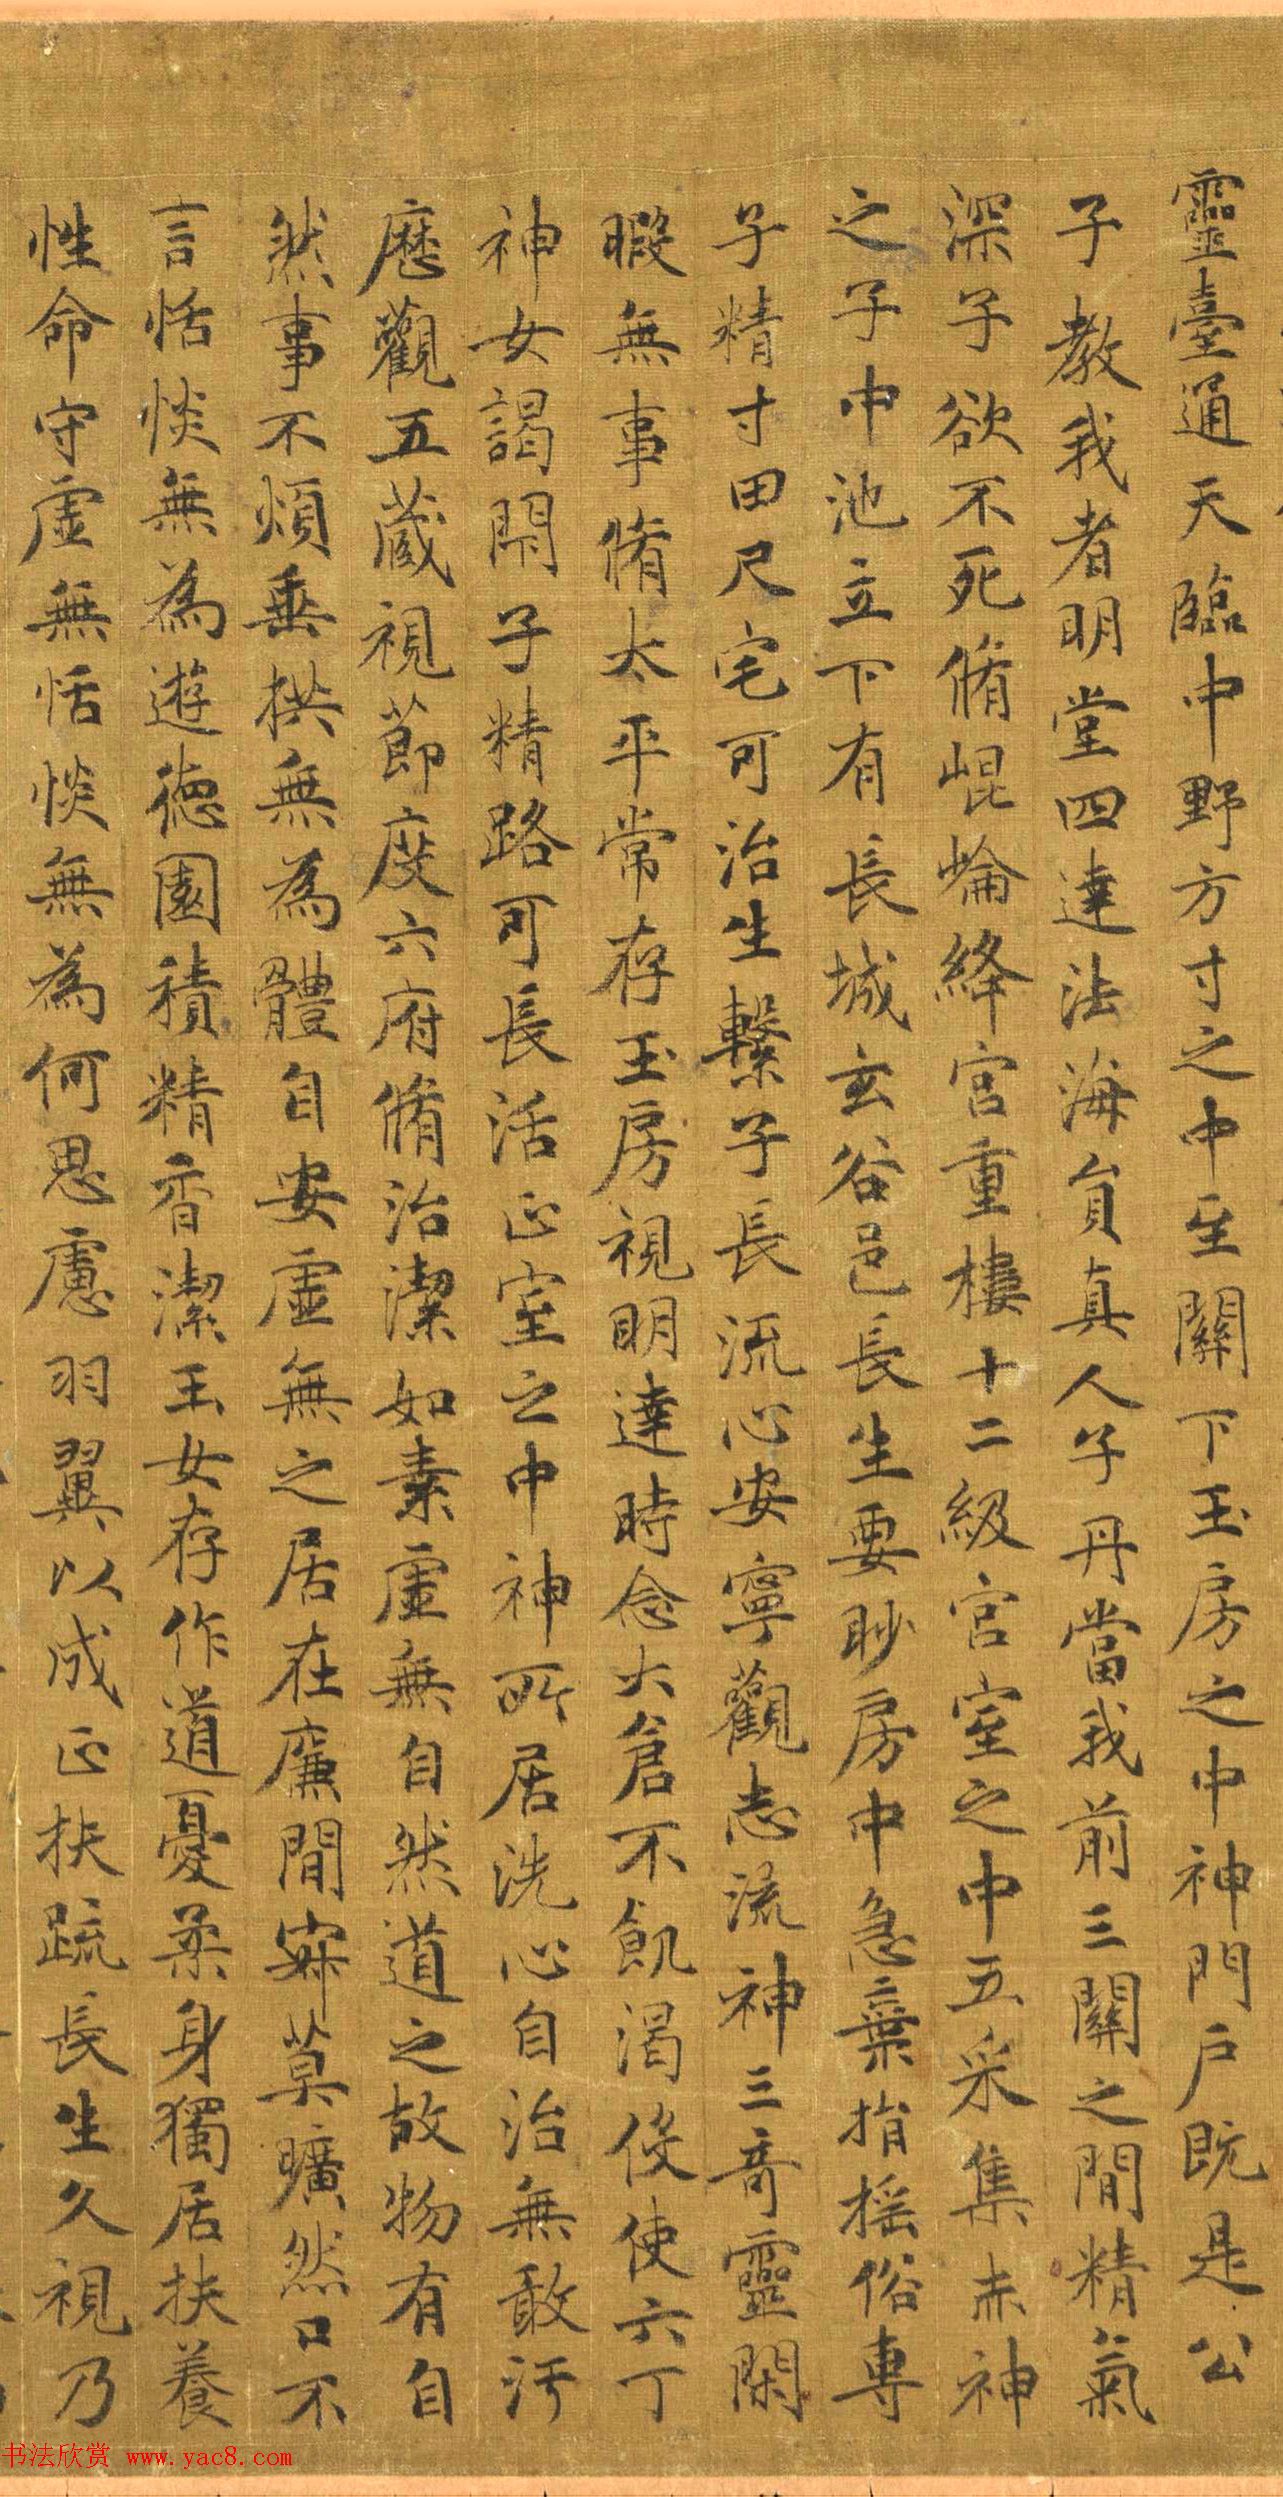 靈臺通天臨中野方寸之中至關下玉房之中神門戶既是公
子教我者明堂四達法海員真人子丹當我前三關之間精氣
深子欲不死脩崐崘絳宮重樓十二級宮室之中五采集赤神
之子中池立下有長城玄谷邑長生要眇房中急棄捐搖俗專
子精寸田尺宅可治生繫子長流心安寧觀志流神三奇靈閑
暇無事脩太平常存玉房視明達時念大倉不飢渴役使六丁
神女謁閇子精路可長活正室之中神所居洗心自治無敢汙
歷觀五藏視節度六府脩治潔如素虛無自然道之故物有自
然事不煩垂拱無為體自安虛無之居在廉間寂莫曠然口不
言恬惔無為遊德園積精香潔玉女存作道憂柔身獨居扶養
性命守虛無恬惔無為何思慮羽翼以成正扶疏長生久視乃
书法欣赏 www.yac8.com